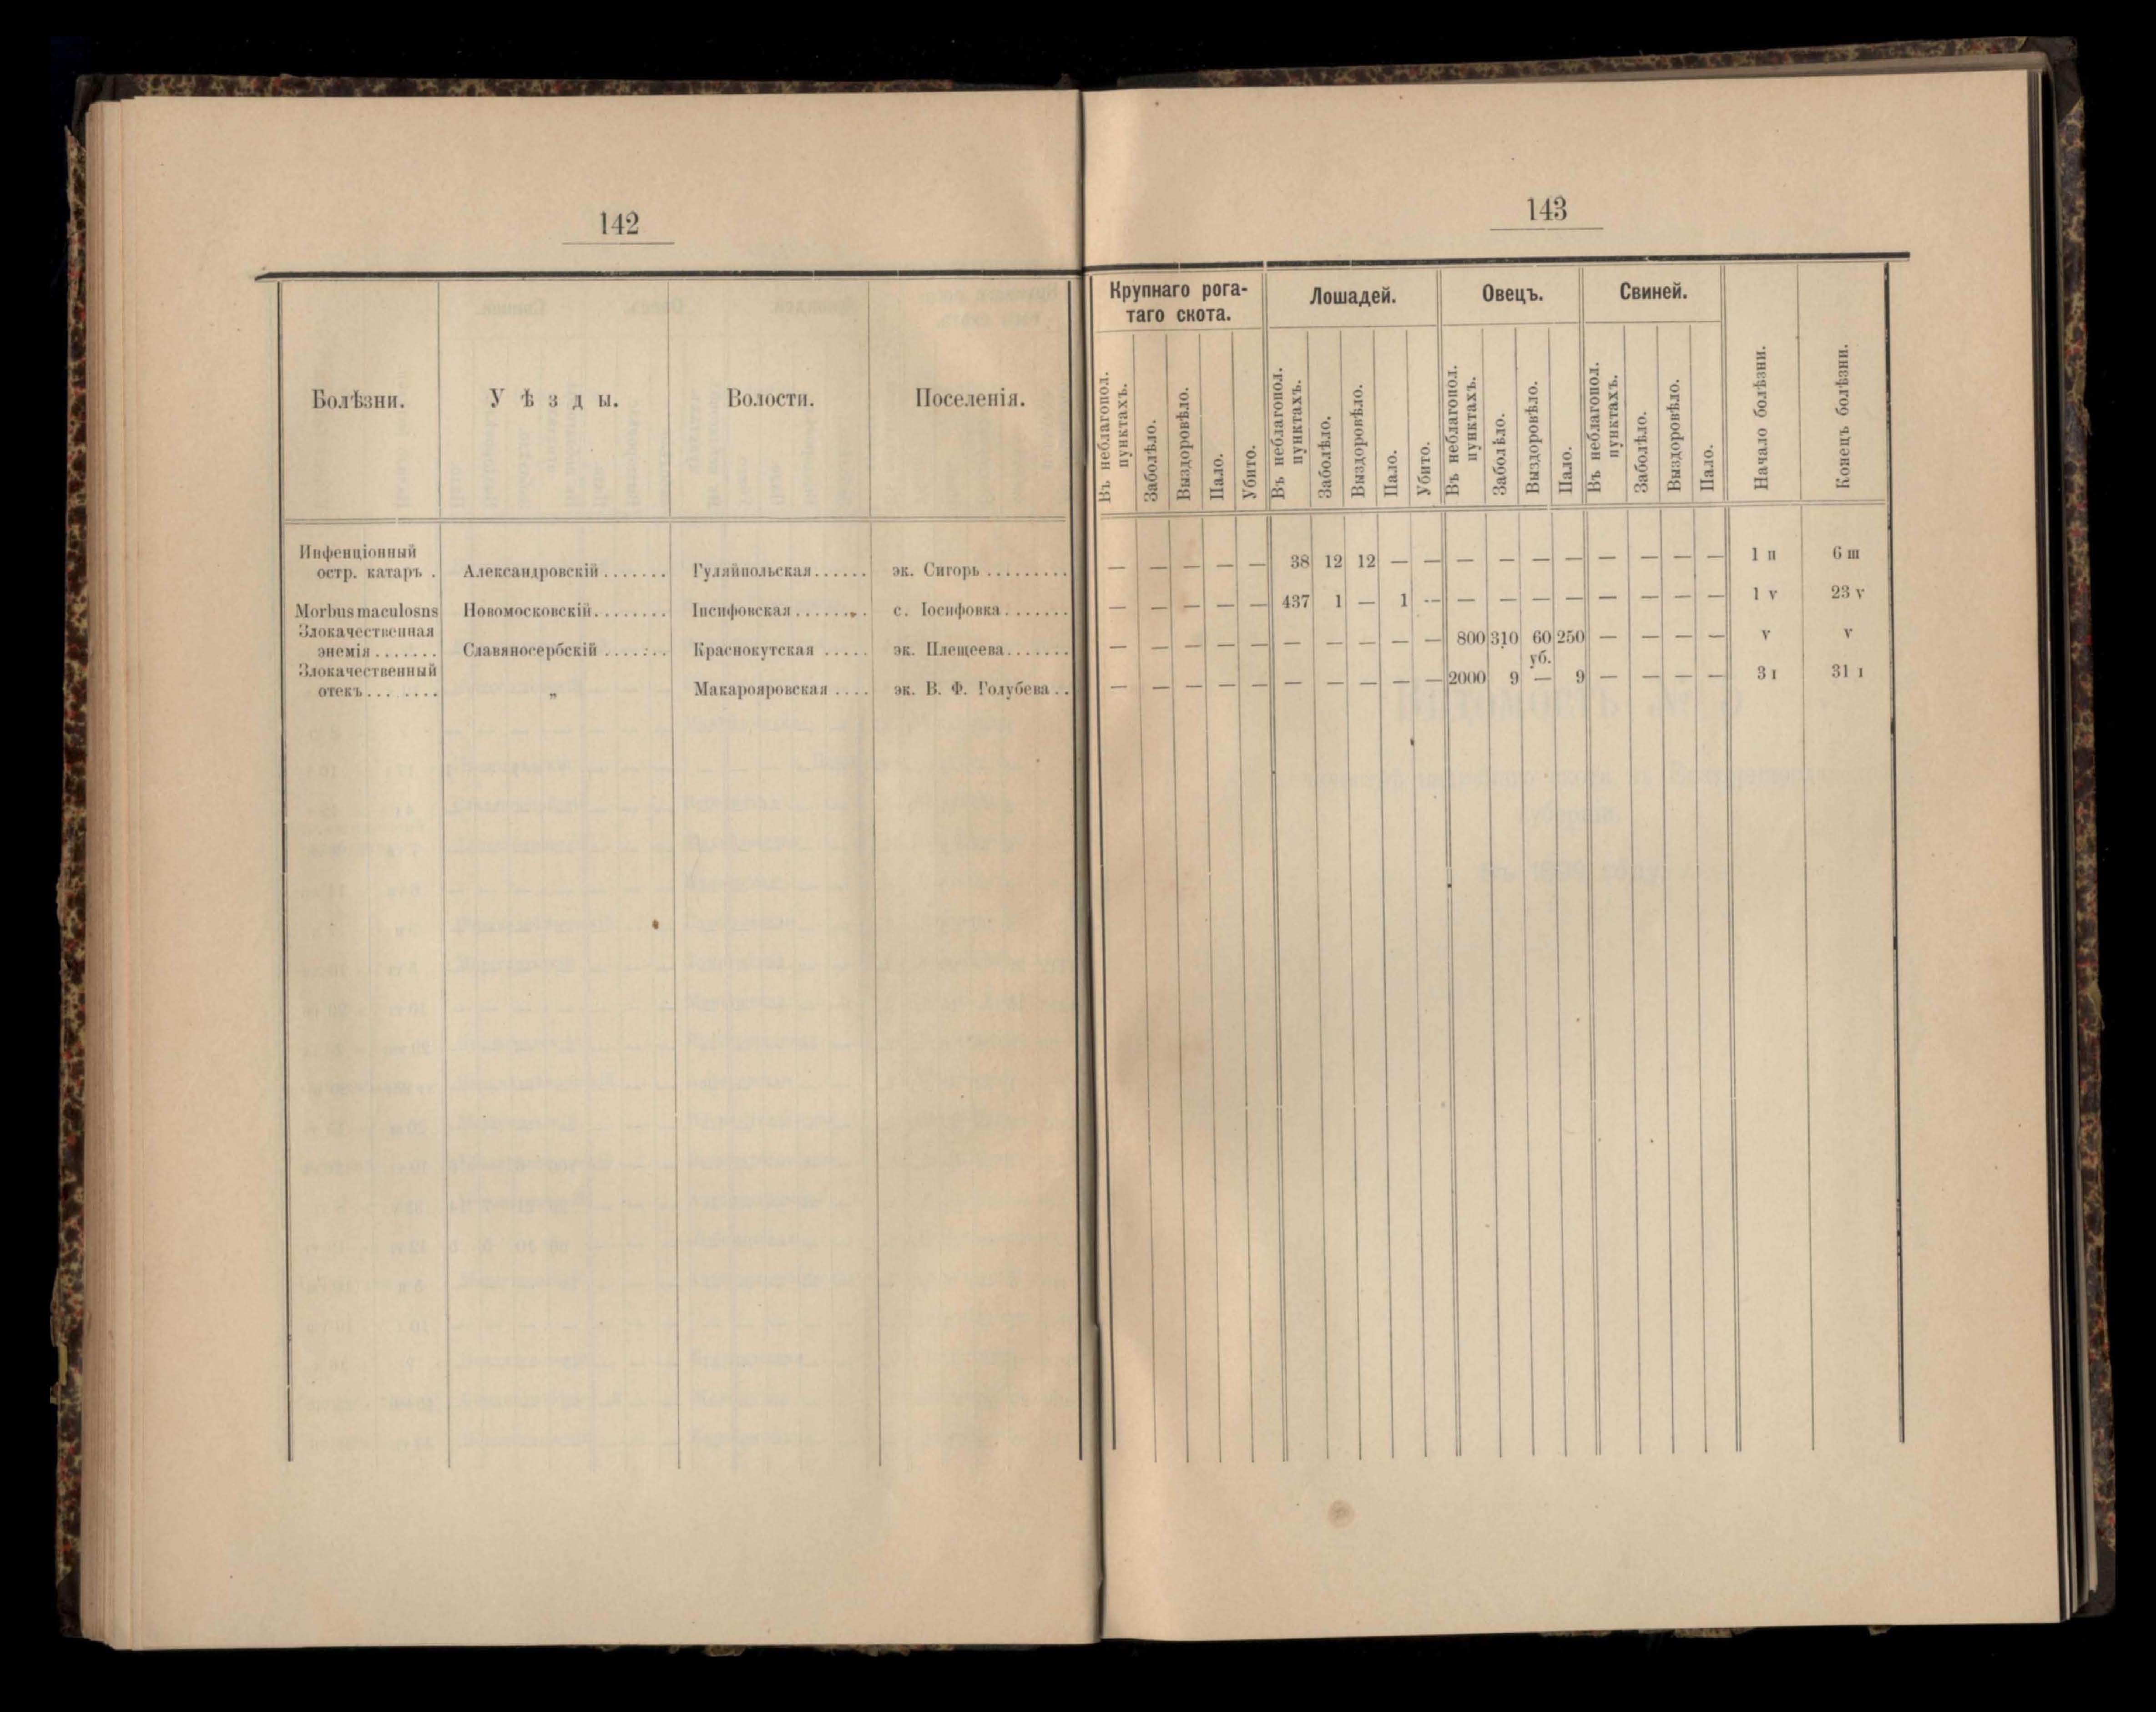 142
Болѣзни. У ѣ з д ы. Волости. Поселенія.
Инфенціонный
остр. катаръ . Александровскій....... Гуляйпольская...... эк. Сигорь .........
Morbus maculosns Новомосковскій........ Іпсифовская ........ с. Іосифовка.......
Злокачественная
энемія....... Славяносербскій ....... Краснокутская ..... эк. Плещеева.......
Злокачественный
отекъ........ „ Макарояровская .... эк. В. Ф. Голубева ..
143
Крупнаго рога-
таго скота. Лошадей. Овецъ. Свиней.
Въ неблагопол.
пунктахъ.
Заболѣло.
Выздоровѣло.
Пало.
Убито.
Въ неблагопол.
пунктахъ.
Заболѣло.
Выздоровѣло.
Пало.
Убито.
Въ неблагопол.
пунктахъ.
Заболѣло.
Выздоровѣло.
Пало.
Въ неблагопол.
пунктахъ.
Заболѣло.
Выздоровѣло.
Пало.
Начало болѣзни.
Конецъ болѣзни.
— — — — — 38 12 12 — — — — — — — — — — 1 п 6 ш
— — — — — 437 1 — 1 — — — — — — — — — 1 v 23 v
— — — — — — — — — — 800 310 60 250 — — — — v v
уб.
— — — — — — — — — — 2000 9 — 9 — — — — 3 ı 31 ı